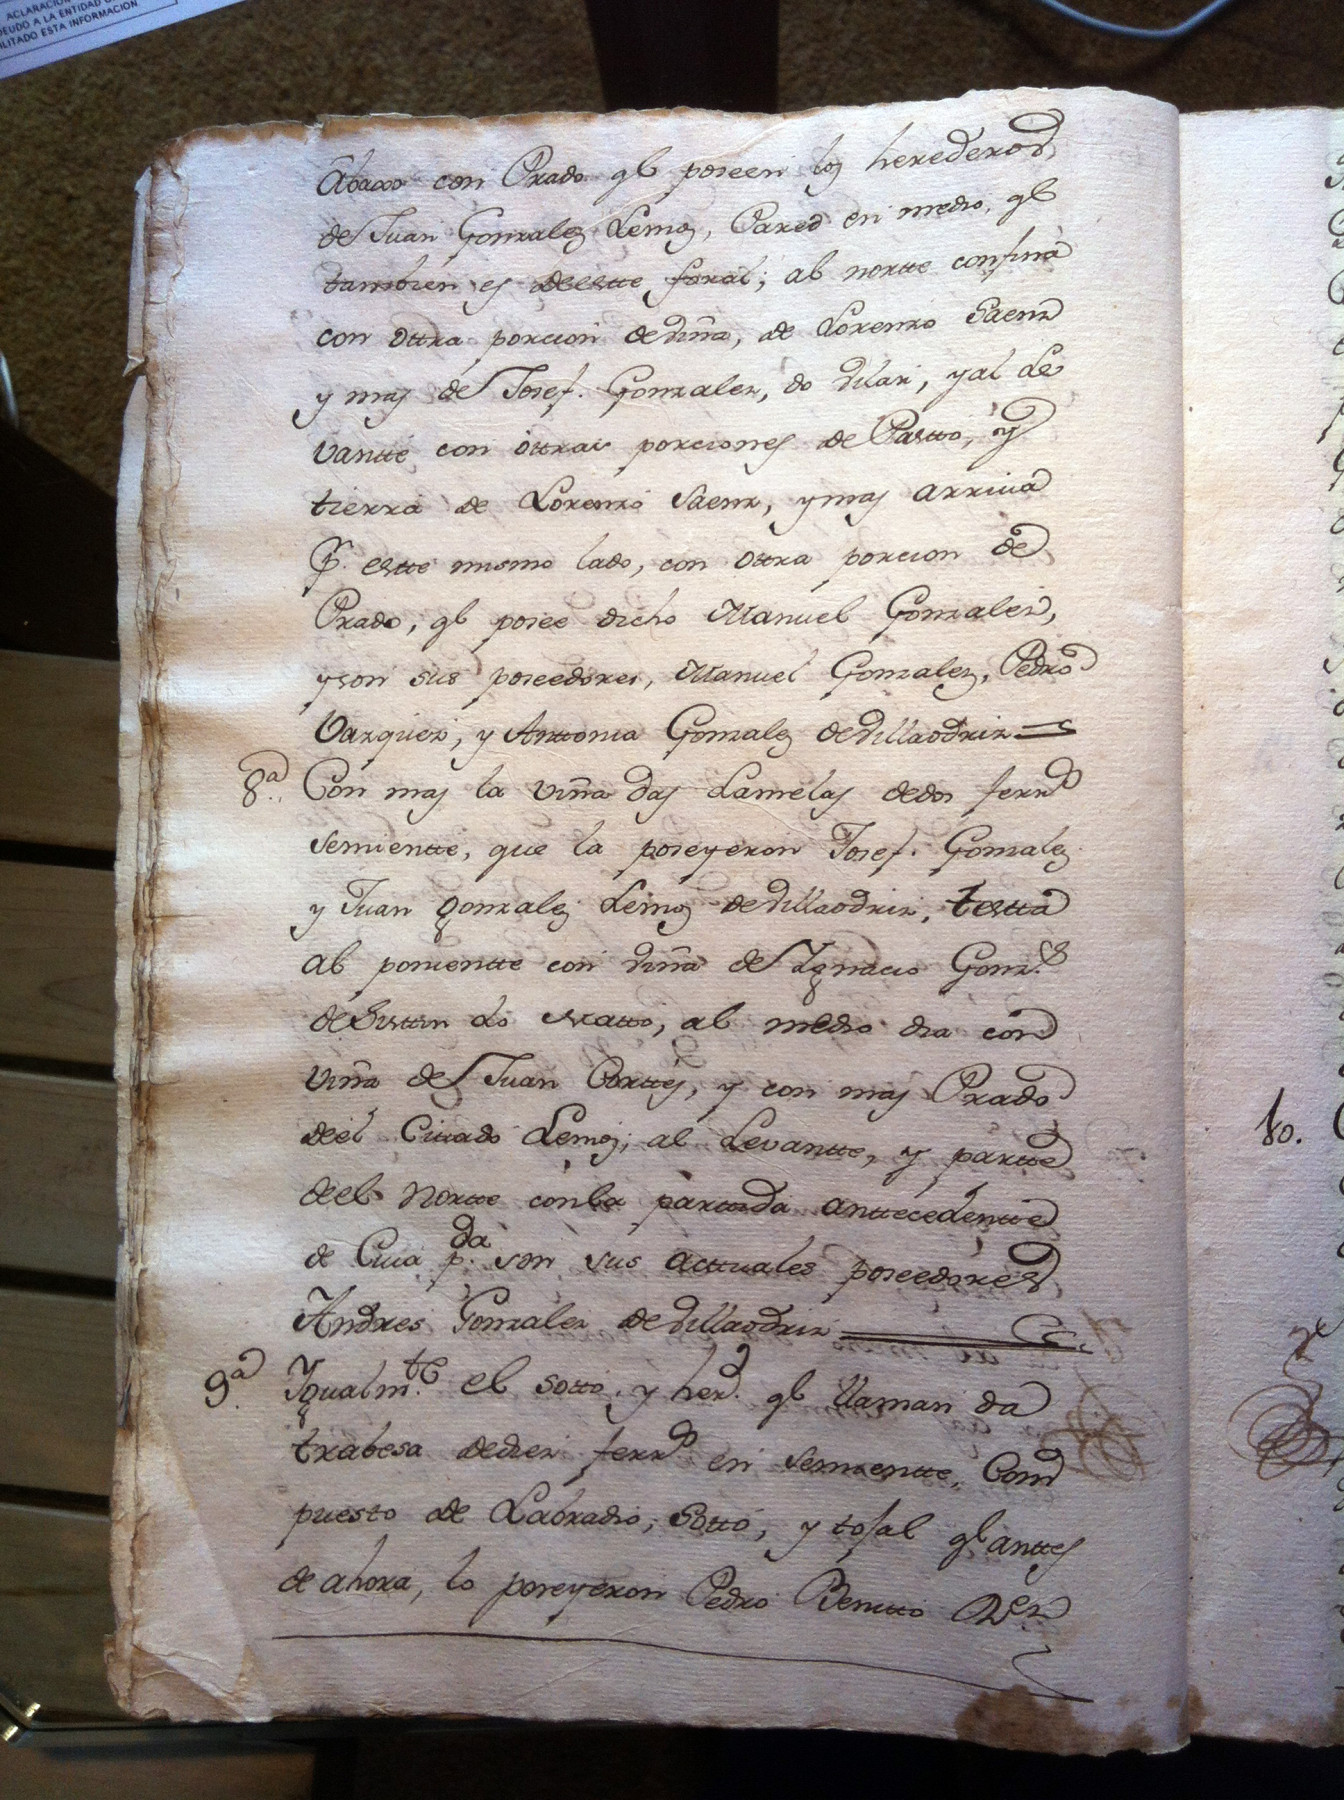 ACLARACION
DEUDO A LA ENTIDAD Q
ILITADO ESTA INFORMACION
Abaxo con Prado qe poseen los herederos
de Juan Gonzalez Lemos, Pared en medio, qe
tambien es de estte foral; al nortte confina
con ottra porcion de viña, de Lorenzo Saenz
y mas de Josef. Gonzalez, do Vilar, y al Le
vantte con ottras porciones de Pastto, y
tierra de Lorenzo Saenz, y mas arriva
Pr. estte mismo lado, con ottra porcion de
Prado, qe posee dicho Manuel Gonzalez,
y son sus poseedores, Manuel Gonzalez, Pedro
Vazquez, y Anttonia Gonzalez de Villaodriz
8a. Con mas la viña das Lamelas de dos ferrdos
semientte, que la poseyeron Josef. Gonzalez
y Juan gonzalez Lemos de Villaodriz, testta
al ponientte con viña de Ygnacio Gonz.z
de do matto, al medio dia con
viña de Juan Corttes, y con mas Prado
de el Cittado Lemos, al Levantte, y partte
de el Nortte con la parttida anttecedentte
de Cuia p.da son sus acttuales poseedores
Andres Gonzalez de Villaodriz
9a. Ygualm.te el sotto y herd. qe llaman da
trabesa de diez ferrdos en semientte, Com
puesto de Labradio, Sotto, y tojal qe anttes
de ahora, lo poseyeron Pedro Benitto Rz.
10.